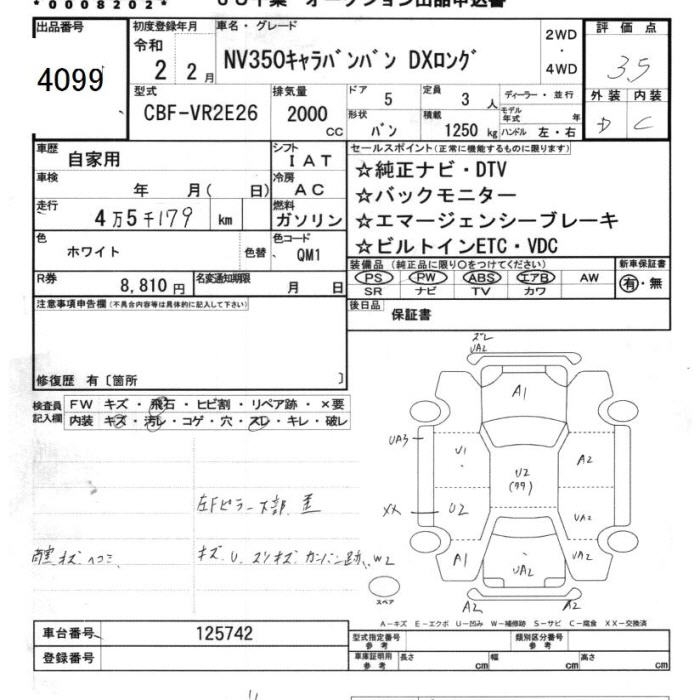 *0008202*
オークション出品申込書
出品番号 初度登録年月 車名・グレード 2WD・4WD 評価点
4099 令和 2 2月 NV350キャラバンバン DXロング 3.5
型式 排気量 ドア 5 定員 3人 ディーラー・並行 外装 内装
CBF-VR2E26 2000 CC 形状 バン 積載 1250kg モデル年式 年 ハンドル 左・右 D C
車歴 自家用 シフト IAT セールスポイント(正常に機能するものに限ります)
車検 年 月( 日) 冷房 AC ☆純正ナビ・DTV
☆バックモニター
走行 4万5千179 km 燃料 ガソリン ☆エマージェンシーブレーキ
色 ホワイト 色替 色コード QM1 ☆ビルトインETC・VDC
装備品(純正品に限り○をつけてください) 新車保証書
R券 8,810円 名変通知期限 月 日 PS PW ABS エアB AW 有・無
SR ナビ TV カワ
注意事項申告欄(不具合内容等は具体的に記入して下さい) 後日品 保証書
修復歴 有〔箇所 〕
検査員記入欄 FW キズ・飛石・ヒビ割・リペア跡・×要
内装 キズ・汚レ・コゲ・穴・スレ・キレ・破レ
ズレ
UA2
A1
UA3 U1 A2
U2
XX U2 UA2
左Fピラー下部
キズ U スリキズ カンバン跡 W2
A1 UA2 UA2
スペア A2 A2
A-キズ E-エクボ U-凹み W-補修跡 S-サビ C-腐食 XX-交換済
車台番号 125742 型式指定番号 参考 類別区分番号 参考
登録番号 車庫証明用 参考 長さ cm 幅 cm 高さ cm